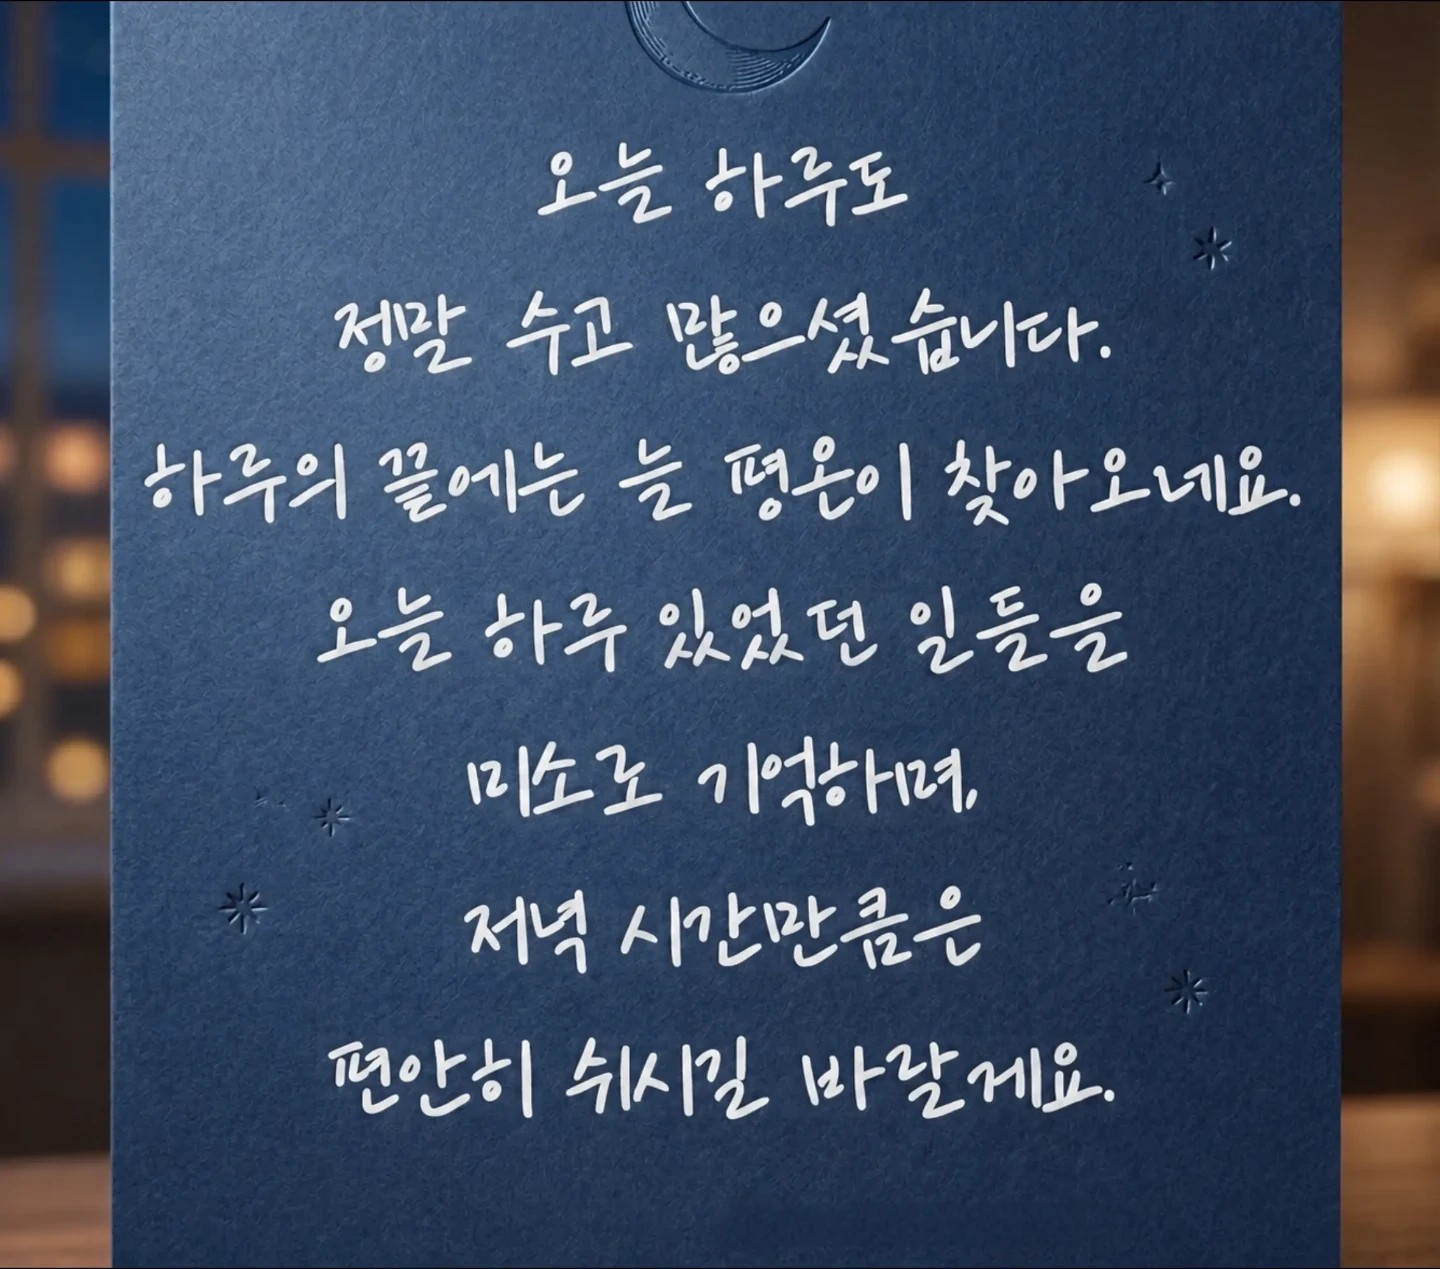 오늘 하루도
정말 수고 많으셨습니다.
하루의 끝에는 늘 평온이 찾아오네요.
오늘 하루 있었던 일들을
미소로 기억하며,
저녁 시간만큼은
편안히 쉬시길 바랄게요.